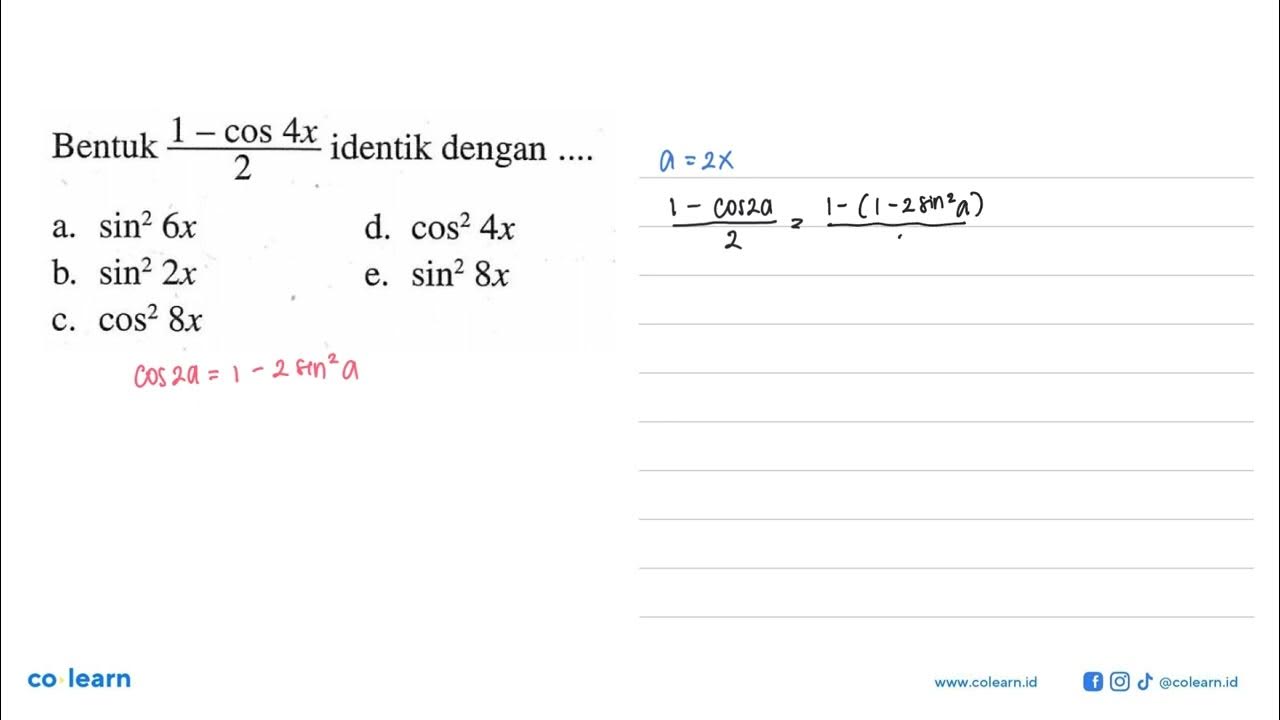 Bentuk (1 – cos 4x)/2 identik dengan ....
a. sin² 6x
b. sin² 2x
c. cos² 8x
d. cos² 4x
e. sin² 8x
cos 2a = 1 - 2 sin² a
a = 2x
(1 - cos2a)/2 = 1 - (1 - 2 sin² a)
co learn
www.colearn.id
@colearn.id